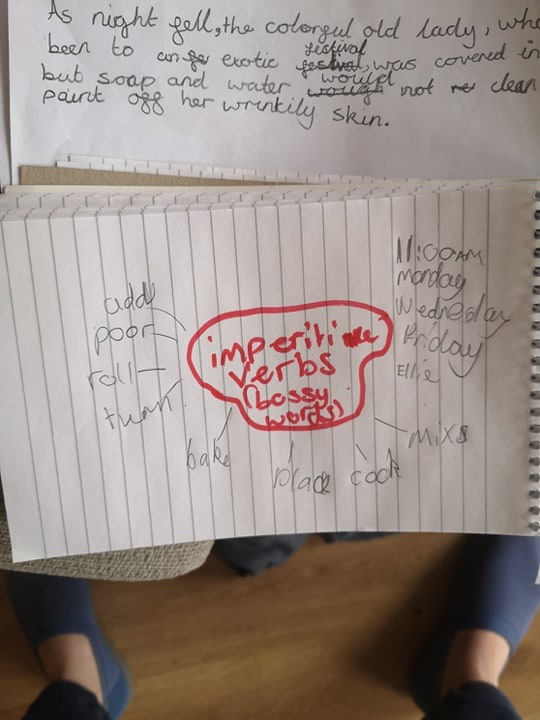 As night fell, the colorful old lady, who
been to exotic festival festival, was covered in
but soap and water would wough not clean
paint off her wrinkily skin.
11:00AM
monday
Wednesday
Friday
Ellie
add
poor
roll
turn
imperitive
verbs
(bossy
words)
bake
place
cook
mixs